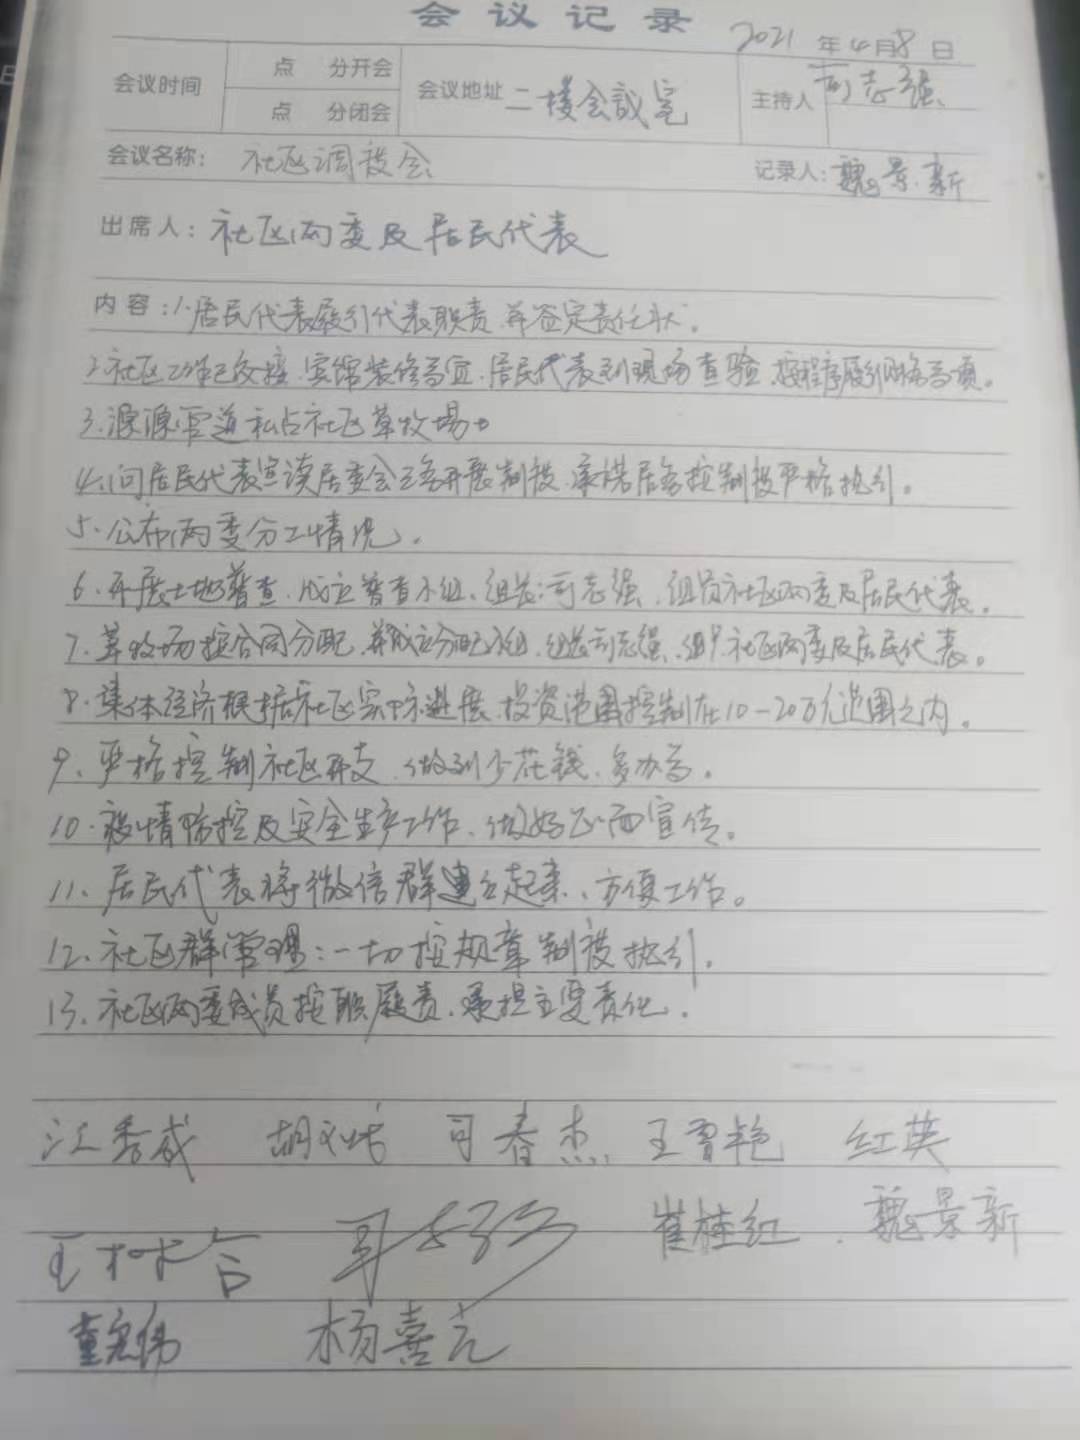 会议记录
2021年4月8日
会议时间 点 分开会 会议地址 二楼会議室 主持人 司志强
点 分闭会
会议名称: 社区调度会 记录人: 魏景新
出席人: 社区两委及居民代表
内容: 1.居民代表履行代表职责,并签定责任状。
2.社区工作已交接,宾馆装修事宜,居民代表到现场查验,按程序履行网格事项。
3.源源 私占社区草牧场
4.向居民代表宣读居委会工务开展制度,承诺居务按制度严格执行。
5.公布两委分工情况。
6.开展土地普查,成立普查小组,组长:司志强,组员社区两委及居民代表。
7.草牧场按合同分配,并成立分配小组,组长司志强,组员社区两委及居民代表。
8.集体经济根据社区实际进展,投资范围控制在10-20万元范围之内。
9.严格控制社区开支,做到少花钱,多办事。
10.疫情防控及安全生产工作,做好正面宣传。
11.居民代表将微信群建立起来,方便工作。
12.社区群管理:一切按规章制度执行。
13.社区两委成员按职履责,承担主要责任。
江秀成 胡 司春杰 王 艳 红英
王树合 崔桂红 魏景新
董宏伟 杨喜